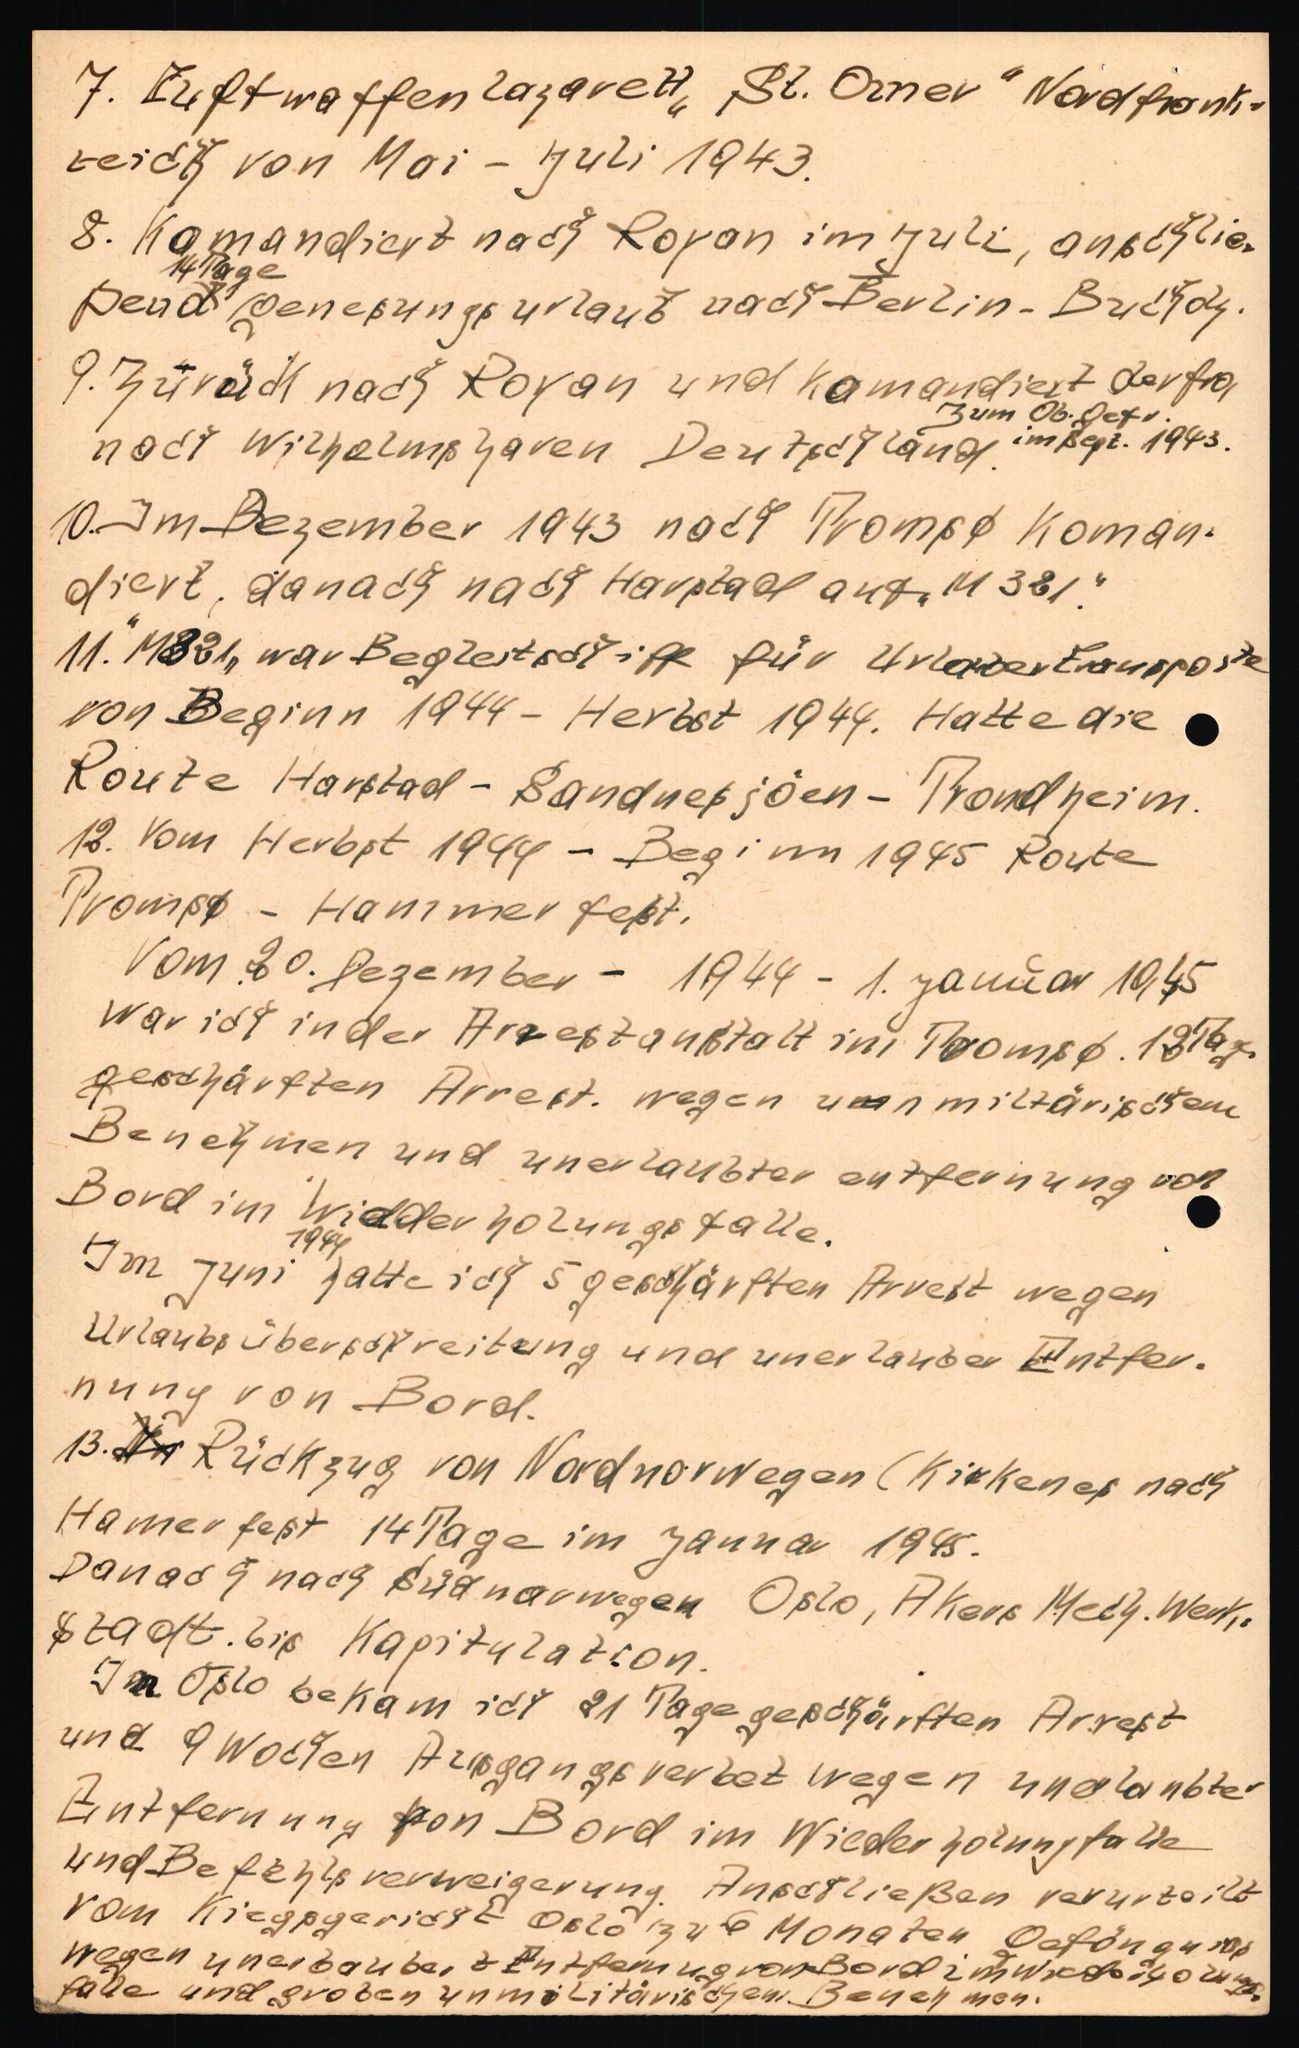 7. Luftwaffenlazarett „St. Omer" Nordfrank-
reich von Mai - Juli 1943.
8. Komandiert nach Royan im Juli, anschlie-
14 Tage
ßend Genesungsurlaub nach Berlin - Buch
9. Zurück nach Royan und komandiert
zum Ob. Gefr.
nach Wilhelmshaven Deutschland. im Sept. 1943.
10. Im Dezember 1943 nach Tromsø Koman-
diert, danach nach Harstad auf „M 321."
11. "M321„ war Begleitschiff für Urlaubertransporte
von Beginn 1944 - Herbst 1944. Hatte die
Route Harstad - Sandnesjöen - Trondheim.
12. Vom Herbst 1944 - Beginn 1945 Route
Tromsø - Hammerfest.
Vom 20. Dezember - 1944 - 1. Januar 1945
war ich in der Arrestanstalt im Tromsø. 12 Tage
geschärften Arrest. wegen unmiltärischem
Benehmen und unerlaubter entfernung von
Bord im Widderholungsfalle.
1944
Im Juni hatte ich 5 geschärften Arrest wegen
Urlaubsüberschreitung und unerlauber Entfer-
nung von Bord.
13. Rückzug von Nordnorwegen (Kirkenes nach
Hamerfest 14 Tage im Januar 1945.
Danach nach Südnorwegen Oslo, Akers Mech. Werk-
stadt. bis Kapitulation.
In Oslo bekam ich 21 Tage geschärften Arrest
und 9 Wochen Ausgangsverbot wegen undlaubter
Entfernung von Bord im Wiederholungfalle
und Befehlsverweigerung. Anschließen verurteilt
vom Kiegsgericht Oslo zu 6 Monaten Gefängnis
wegen unerlaubert Entfernung von Bord im Wiederholungs-
falle und groben unmilitärischem Benehmen.